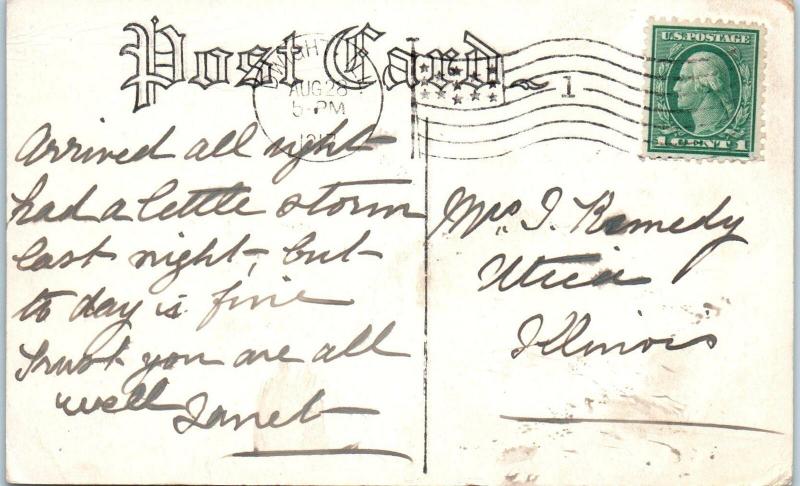 Post Card
AUG 28
5-PM
1
U.S. POSTAGE
1 CENT 1
Arrived all right
had a little storm
last night, but
to day is fine
Trust you are all
well Janet
Mrs. J. Kennedy
Utica
Illinois